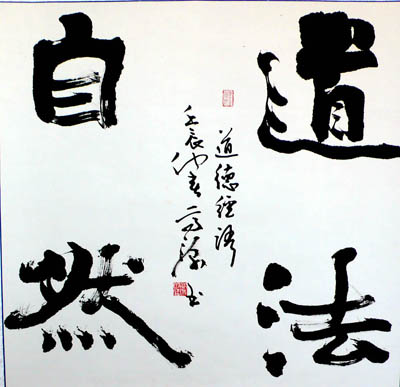 道法
自然
道德經語
壬辰仲春书